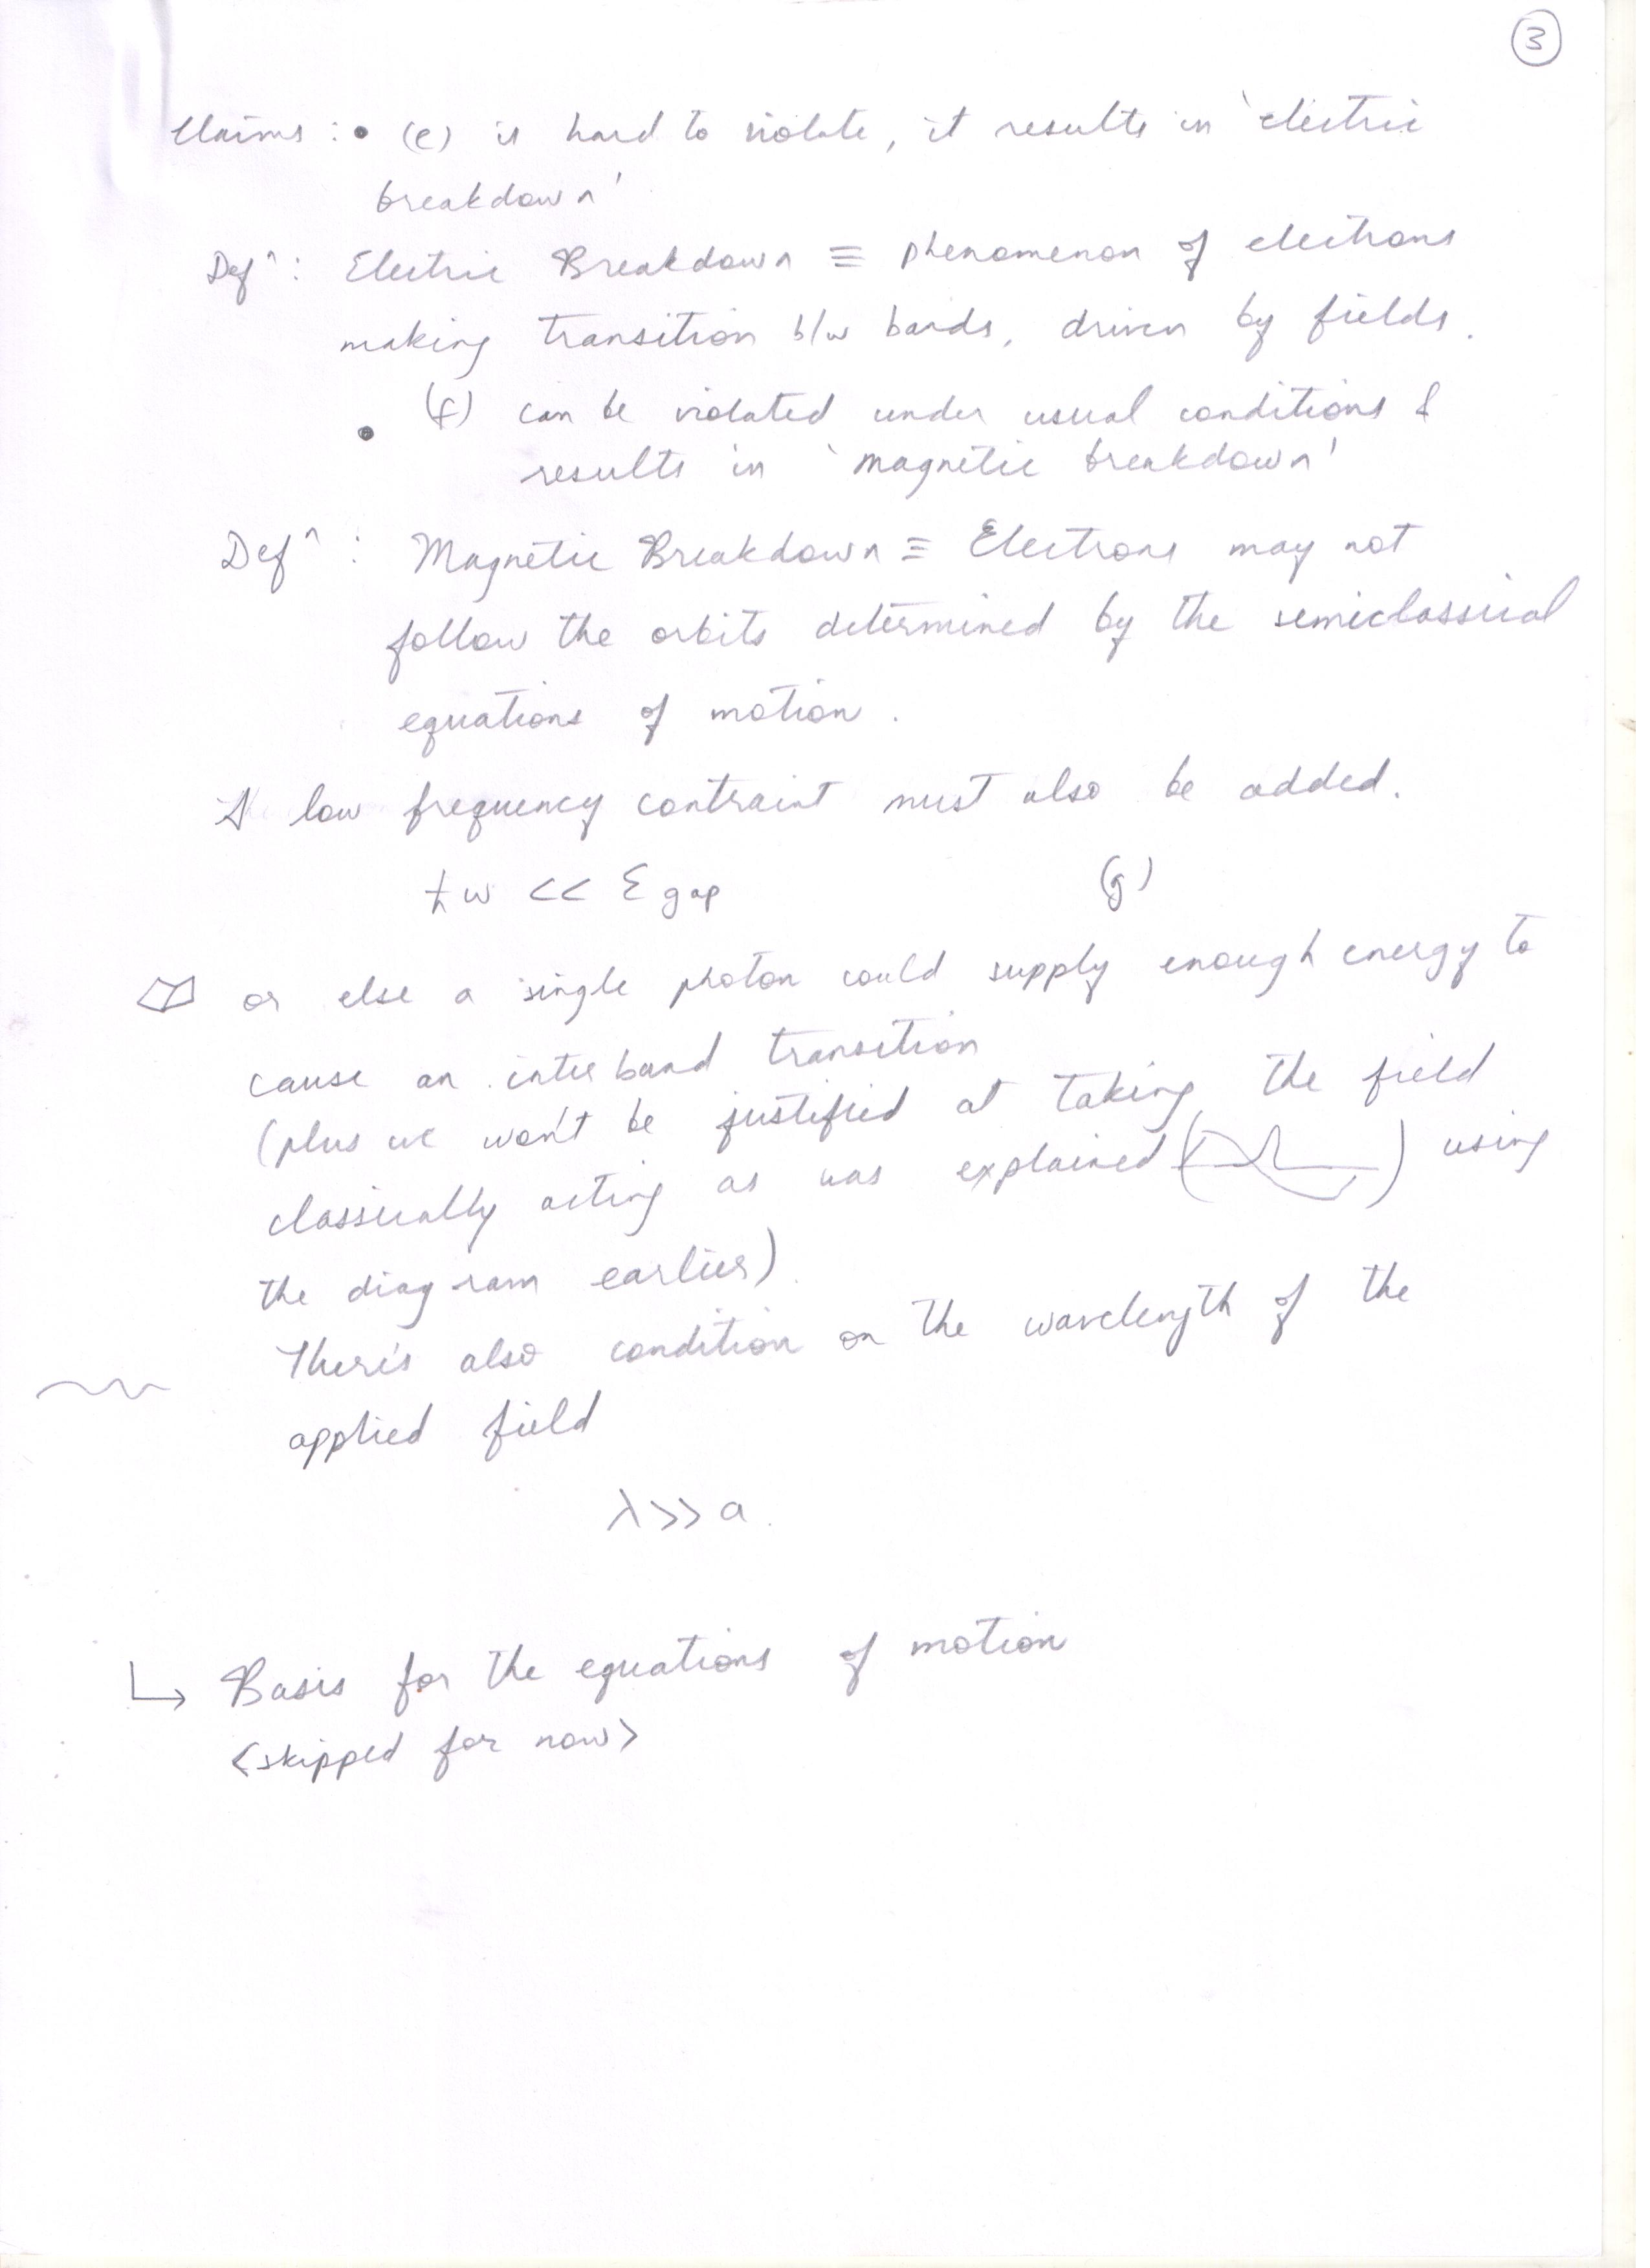 3
Claims : • (e) is hard to violate, it results in 'electric
breakdown'
Defⁿ : Electric Breakdown ≡ phenomenon of electrons
making transition b/w bands, driven by fields.
• (f) can be violated under usual conditions &
results in 'magnetic breakdown'
Defⁿ : Magnetic Breakdown ≡ Electrons may not
follow the orbits determined by the semiclassical
equations of motion.
A low frequency contraint must also be added.
ħω << Ɛ gap (g)
or else a single photon could supply enough energy to
cause an interband transition
(plus we won't be justified at taking the field
classically acting as was explained ( ) using
the diagram earlier)
There's also condition on the wavelength of the
applied field
λ >> a.
↳ Basis for the equations of motion
<skipped for now>